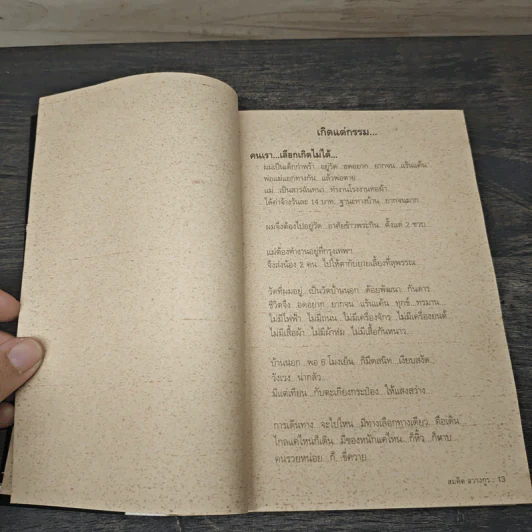 เกิดแต่กรรม...
คนเรา...เลือกเกิดไม่ได้...
ผมเป็นเด็กกำพร้า...อยู่วัด...อดอยาก...ยากจน...แร้นแค้น
พ่อแม่แยกทางกัน...แล้วพ่อตาย
แม่...เป็นสารฉันทนา...ทำงานโรงงานทอผ้า
ได้ค่าจ้างวันละ 14 บาท...ฐานะทางบ้าน...ยากจนมาก
ผมจึงต้องไปอยู่วัด...อาศัยข้าวพระกิน...ตั้งแต่ 2 ขวบ
แม่ต้องทำงานอยู่ที่กรุงเทพฯ
จึงส่งน้อง 2 คน...ไปให้ตากับยายเลี้ยงที่สุพรรณ
วัดที่ผมอยู่...เป็นวัดบ้านนอก...ด้อยพัฒนา...กันดาร
ชีวิตจึง...อดอยาก...ยากจน...แร้นแค้น...ทุกข์...ทรมาน
ไม่มีไฟฟ้า...ไม่มีถนน...ไม่มีเครื่องจักร...ไม่มีเครื่องยนต์
ไม่มีเสื้อผ้า...ไม่มีผ้าห่ม...ไม่มีเสื้อกันหนาว
บ้านนอก...พอ 6 โมงเย็น...ก็มืดสนิท...เงียบสงัด
วังเวง...น่ากลัว
มีแต่เทียน...กับตะเกียงกระป๋อง...ให้แสงสว่าง
การเดินทาง...จะไปไหน...มีทางเลือกทางเดียว...คือเดิน
ไกลแค่ไหนก็เดิน...มีของหนักแค่ไหน...ก็หิ้ว...ก็หาบ
คนรวยหน่อย...ก็...ขี่ควาย
สมคิด ลวางกูร : 13